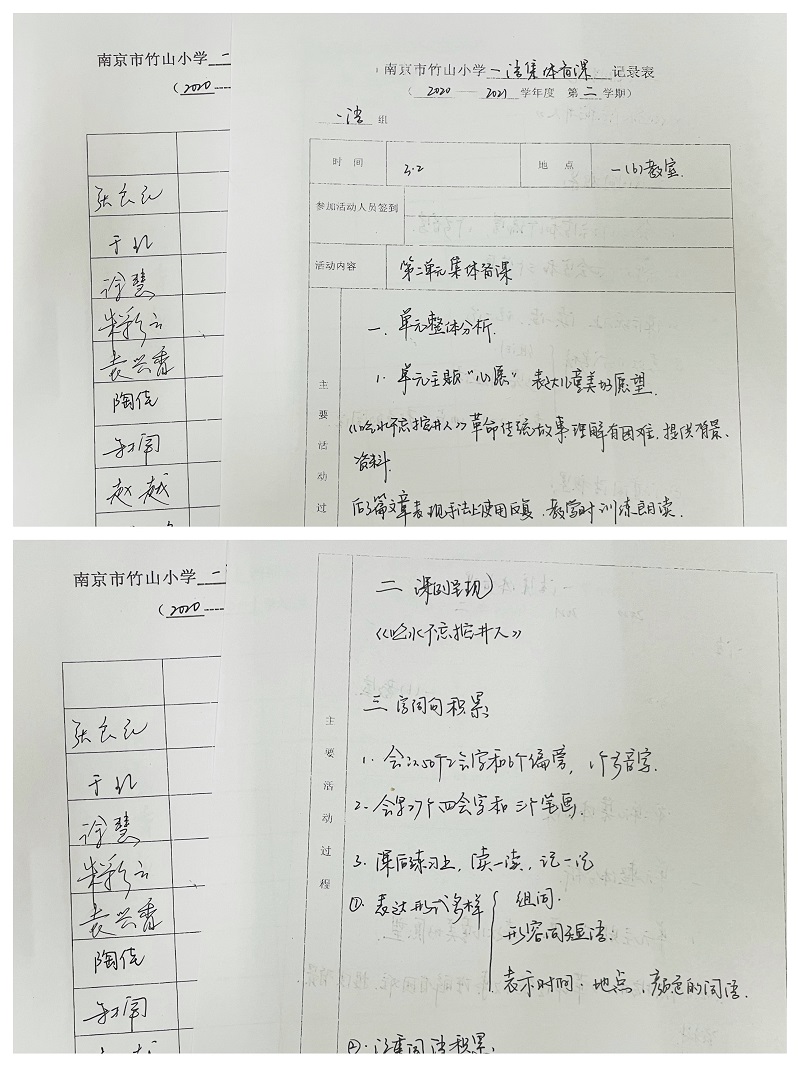 南京市竹山小学 二
(2020
张
于
徐慧
朱彩云
袁兴香
陶佳
赵越
南京市竹山小学 一语集体备课 记录表
( 2020 —— 2021 学年度 第 二 学期)
一语 组
时 间 3.2 地 点 一(6)教室.
参加活动人员签到
活动内容 第二单元集体备课
主要活动过
一. 单元整体分析.
1. 单元主题“心愿” 表达儿童美好愿望.
《吃水不忘挖井人》革命传统故事,理解有困难,提供背景、
资料.
后3篇文章表现手法上使用反复.教学时训练朗读.
南京市竹山小学 二
(2020
张
于
徐慧
朱彩云
袁兴香
陶佳
主要活动过程
二 课例呈现
《吃水不忘挖井人》
三 字词句积累
1. 会认50个2会字和6个偏旁, 1个多音字.
2. 会写27个四会字和三个笔画.
3. 课后练习上, 读一读, 记一记
①. 表达形式多样
组词.
形容词短语.
表示时间.地点.颜色的词语.
②. 注重词语积累.